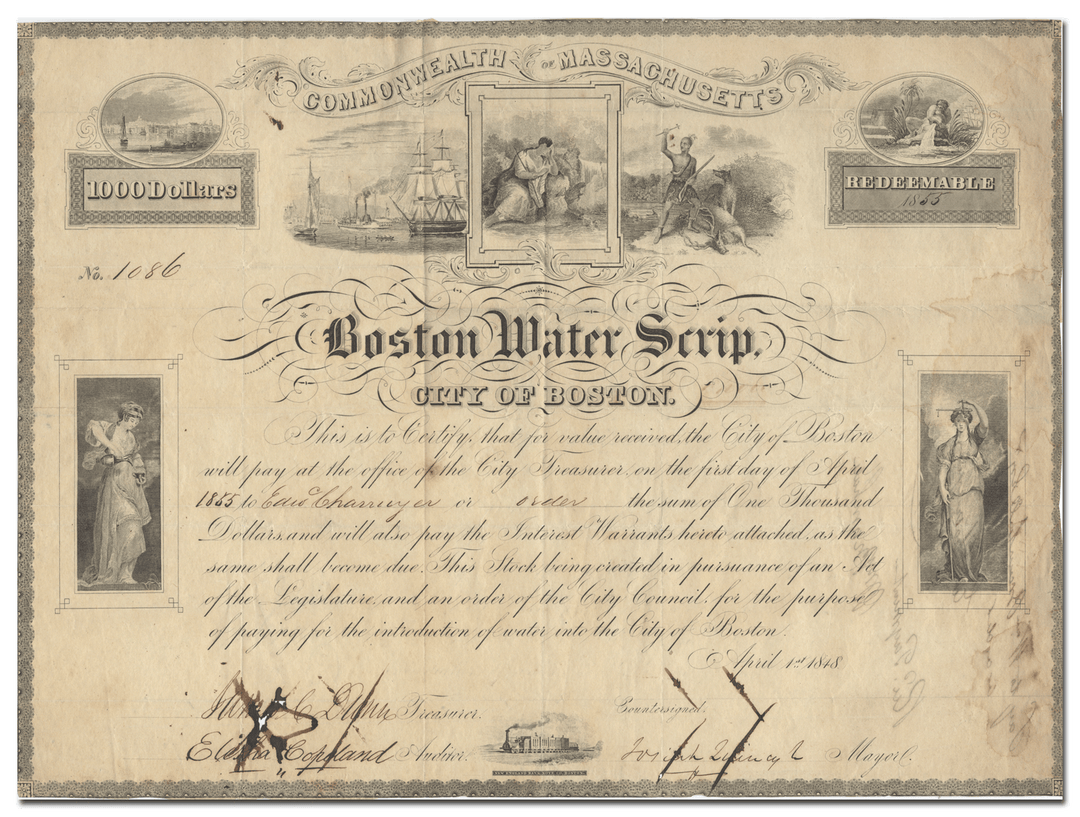 COMMONWEALTH OF MASSACHUSETTS
1000 Dollars
REDEEMABLE
1855
No. 1086
Boston Water Scrip.
CITY OF BOSTON.
This is to Certify, that for value received, the City of Boston
will pay at the office of the City Treasurer, on the first day of April
1855 to Edwd or order the sum of One Thousand
Dollars, and will also pay the Interest Warrants hereto attached, as the
same shall become due. This Stock being created in pursuance of an Act
of the Legislature, and an order of the City Council, for the purpose
of paying for the introduction of water into the City of Boston.
April 1st 1848
Treasurer.
Countersigned.
Elisha Copeland Auditor.
Josiah Quincy Jr Mayor.